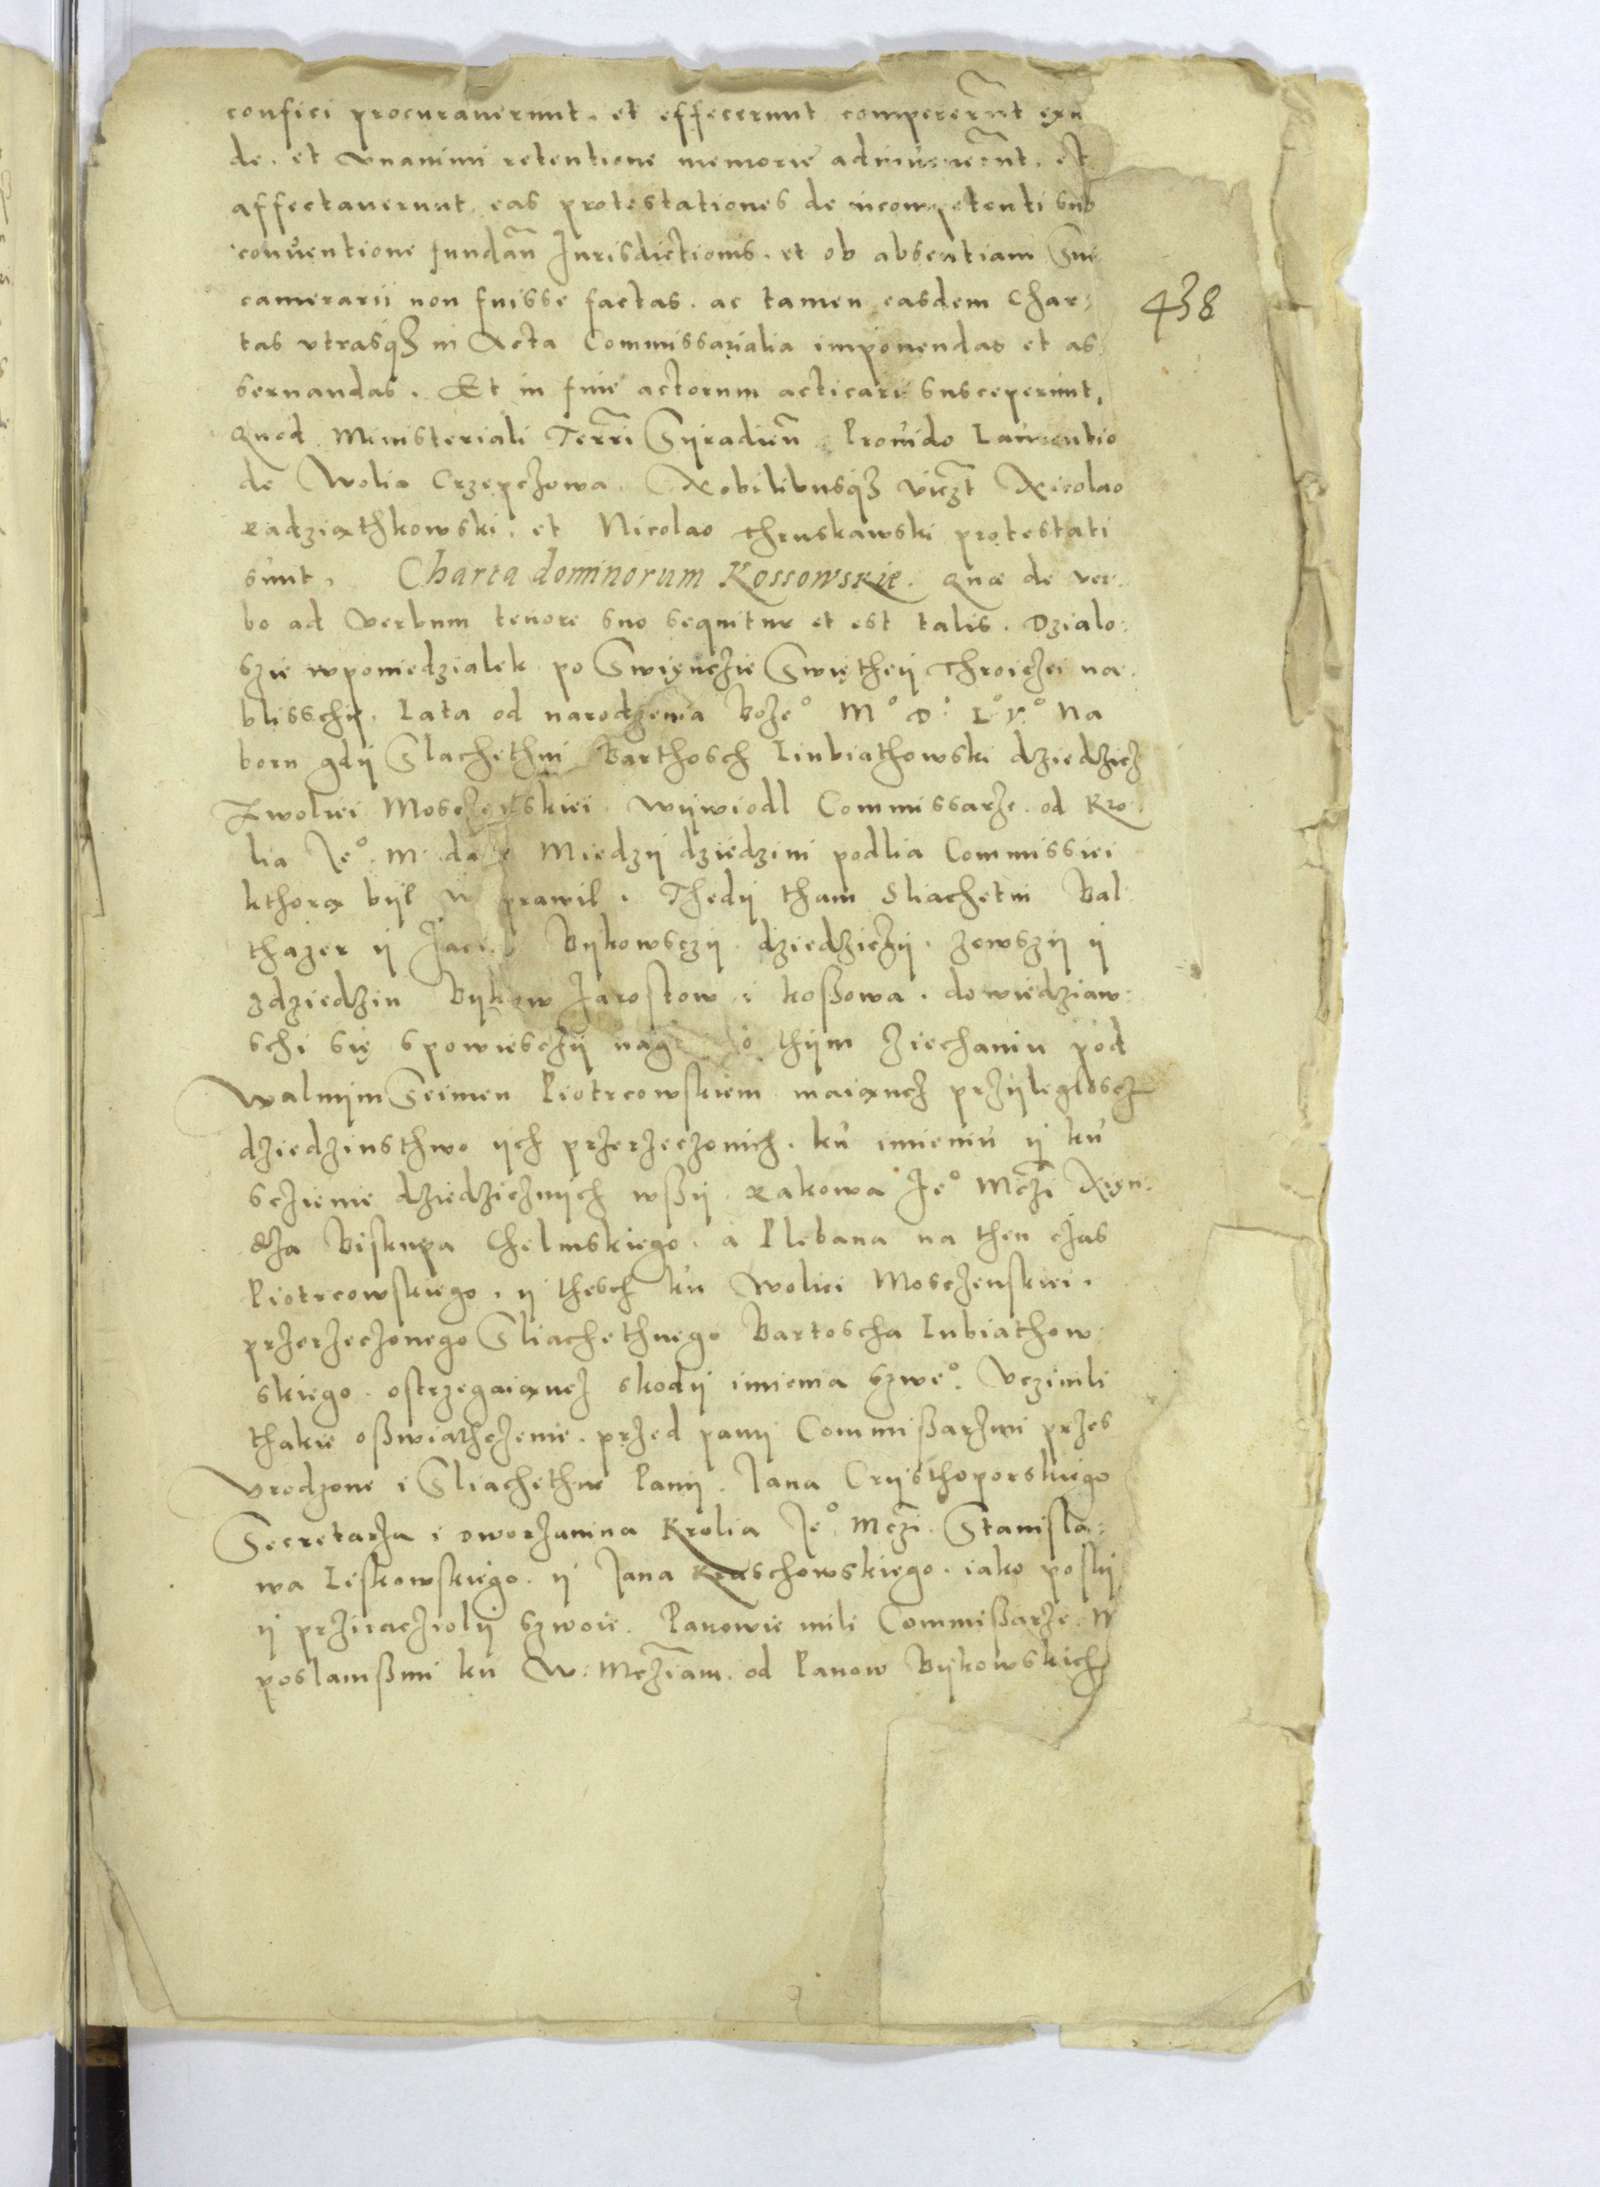 confici procurauerunt. et effecerunt compererũt exn
de. et vnanimi retentione memorie et
affectauerunt eas protestationes de incompetenti sub
conventione fundañ Jurisdictionis. et ob absentiam Sui
camerarii non fuisse factas. ac tamen easdem Char:
438
tas vtrasqz in Acta Commissarialia imponendas et as
seruandas. Et in fine actorum acticari susceperunt,
Quod Ministeriali Terri Syradieñ Prouido Laurentio
de Wolia Crzepczowa. Nobilibusqz viczt Nicolao
Radziąthkowski. et Nicolao Thruskawski protestati
sunt. Charta dominorum Kossowskie. Quæ de ver:
bo ad verbum tenore suo sequitur et est talis. Dzialo:
szie wponiedzialek po Swięnczie Swiętheij Throiczei na
blisschy. Lata od narodzenia Boże° M° D° L° V° Na
boru gdij Slachethni Barthosch Liubiathowski dziedzicz
Zwoliei Mosczenskiei. wijwiodl Commissarze. od Kro:
lia Je° M. Miedzij dziedzini podlia Commissiei
kthorą bijl prawil. Thedij tham Sliachetni Bal:
thazer ij Bijkowsczij. dziedziczij. zewszij ij
zdziedzin Bijkow Jarostow i koßowa. dowiedziaw:
schi się spowiesczij o thijm ziechaniu pod
walnijm Seimen Piotrcowskiem maiąncz przijlegloscz
dziedzinsthwo ijch przerzeczonich. ku imieniu ij ku
sczienie dziedzicznijch wßij. Rakowa Je° Mczi Xięn:
dza Biskupa Chelmskiego. a Plebana na then czas
Piotrcowskiego. ij thesch ku Woliei Mosczenskiei.
przerzeczonego Sliachethnego Bartoscha Lubiathow:
skiego. ostrzegaiąncz skodij imienia szwe°. Vczinili
thakie oßwiathczenie. przed panij Commißarzmi przes
vrodzone i Sliachethne Panij. Jana Crijsthoporskiego
Secretarza i dworzanina Krolia Je° Mczi. Stanisla:
wa Leskowskiego. ij Jana Kraschowskiego. iako poslij
ij prziiacziolij szwoie. Panowie mili Commißarze. W
poslanißmi ku W. Mcziam. od Panow Bijkowskich